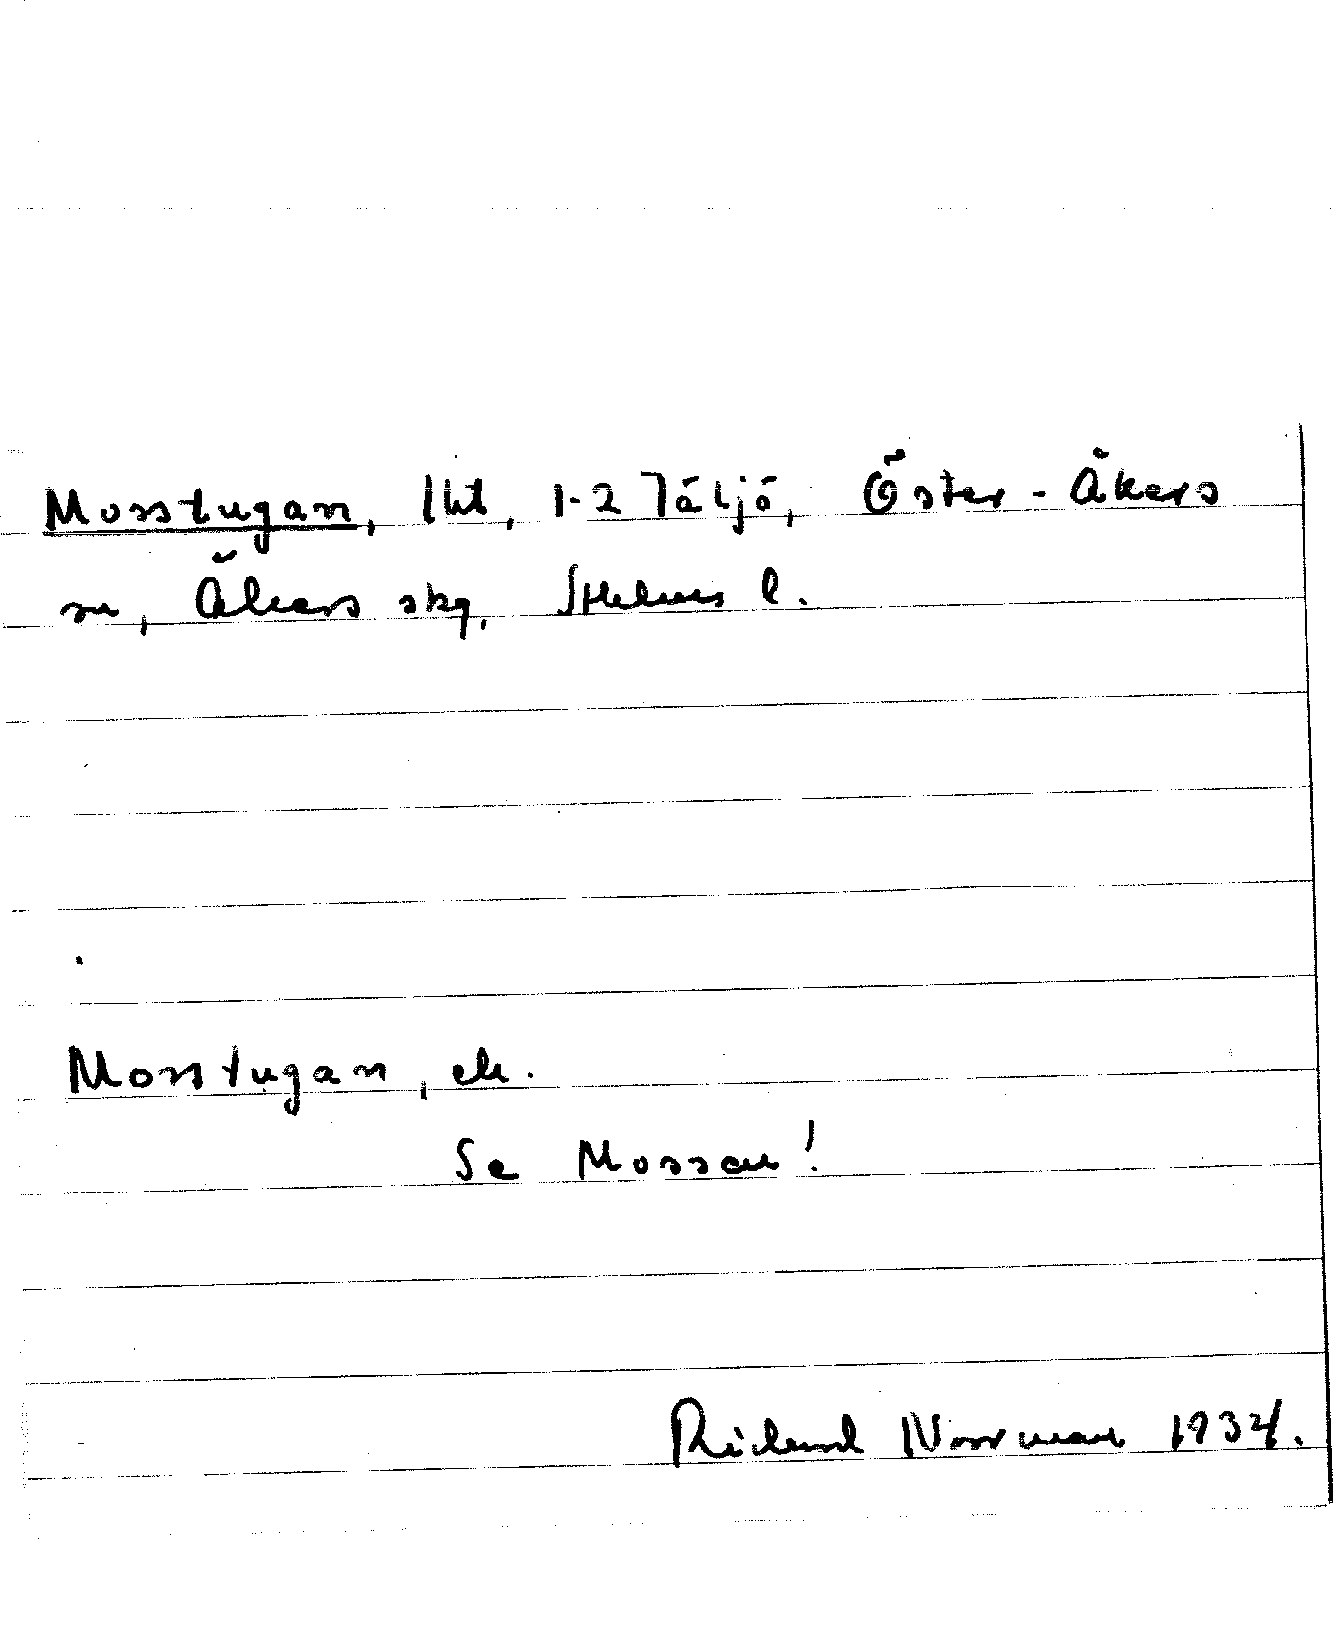 Mosstugan, lht, 1-2 Täljö, Öster-Åkers
sn, Åkers skg, Sthlms l.
Mosstugan, ek.
Se Mossen!
Richard Norrman 1934.